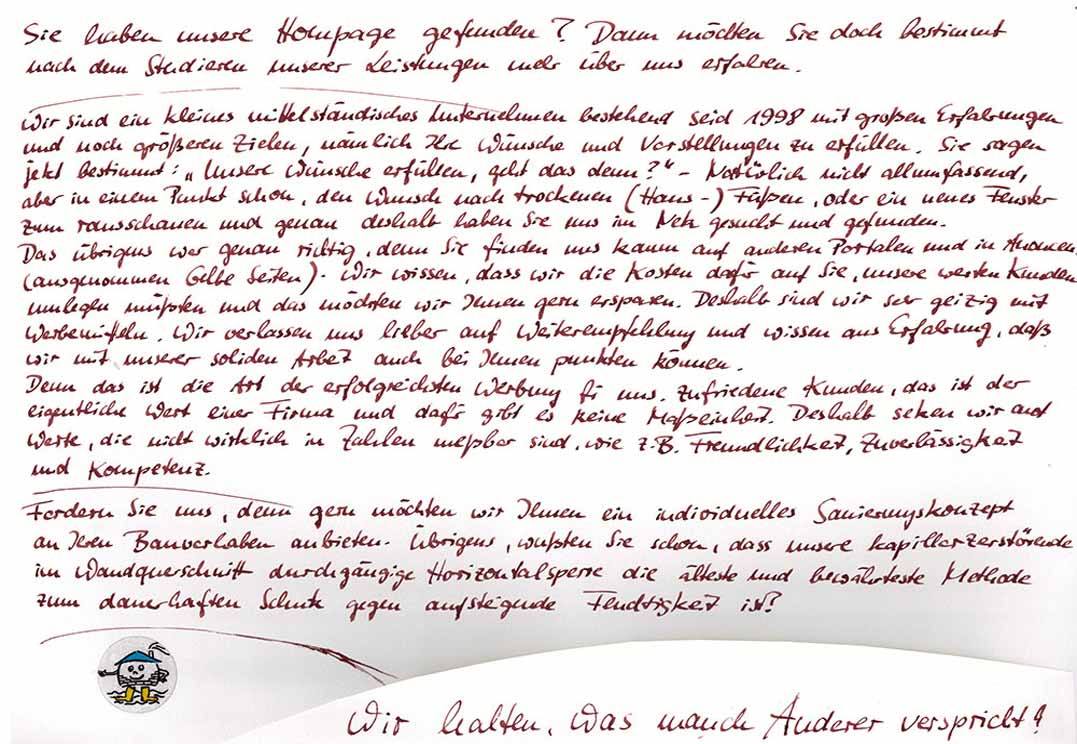 Sie haben unsere Hompage gefunden? Dann möchten Sie doch bestimmt
nach dem Studieren unserer Leistungen mehr über uns erfahren.
Wir sind ein kleines mittelständisches Unternehmen bestehend seid 1998 mit großen Erfahrungen
und noch größeren Zielen, nämlich Ihre Wünsche und Vorstellungen zu erfüllen. Sie sagen
jetzt bestimmt: „Unsere Wünsche erfüllen, geht das denn?" - Natürlich nicht allumfassend,
aber in einem Punkt schon, den Wunsch nach trockenen (Haus-) Füßen, oder ein neues Fenster
zum rausschauen und genau deshalb haben Sie uns im Netz gesucht und gefunden.
Das übrigens war genau richtig, denn Sie finden uns kaum auf anderen Portalen und in
(ausgenommen Gelbe Seiten). Wir wissen, dass wir die Kosten dafür auf Sie, unsere werten Kunden
umlegen müßten und das möchten wir Ihnen gern ersparen. Deshalb sind wir sehr geizig mit
Werbemitteln. Wir verlassen uns lieber auf Weiterempfehlung und wissen aus Erfahrung, daß
wir mit unserer soliden Arbeit auch bei Ihnen punkten können.
Denn das ist die Art der erfolgreichsten Werbung für uns. Zufriedene Kunden, das ist der
eigentliche Wert einer Firma und dafür gibt es keine Maßeinheit. Deshalb setzen wir auf
Werte, die nicht wirklich in Zahlen meßbar sind, wie z.B. Freundlichkeit, Zuverlässigkeit
und Kompetenz.
Fordern Sie uns, denn gern möchten wir Ihnen ein individuelles Sanierungskonzept
an Ihren Bauvorhaben anbieten. Übrigens, wußten Sie schon, dass unsere kapillarzerstörende
im Wandquerschnitt durchgängige Horizontalsperre die älteste und bewährteste Methode
zum dauerhaften Schutz gegen aufsteigende Feuchtigkeit ist?
Wir halten, was manch Anderer verspricht!